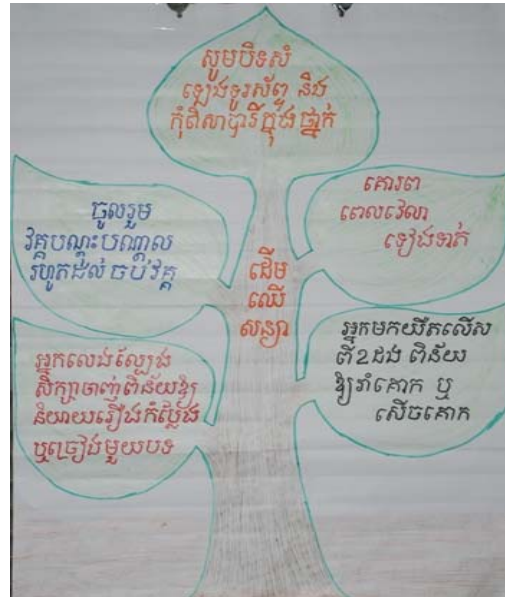 សូមបិទសំ
ឡេងទូរស័ព្ទ និង
កុំពិសាបារីក្នុងថ្នាក់
ចូលរួម
វគ្គបណ្តុះបណ្តាល
រហូតដល់ចប់វគ្គ
គោរព
ពេលវេលា
ទៀងទាត់
ដើម
ឈើ
សន្យា
អ្នកលេងល្បែង
សិក្សាចាញ់ពិន័យឱ្យ
និយាយរឿងកំប្លែង
ឬច្រៀងមួយបទ
អ្នកមកយឺតលើស
ពី2ដង ពិន័យ
ឱ្យរាំគោក ឬ
សើចគោក